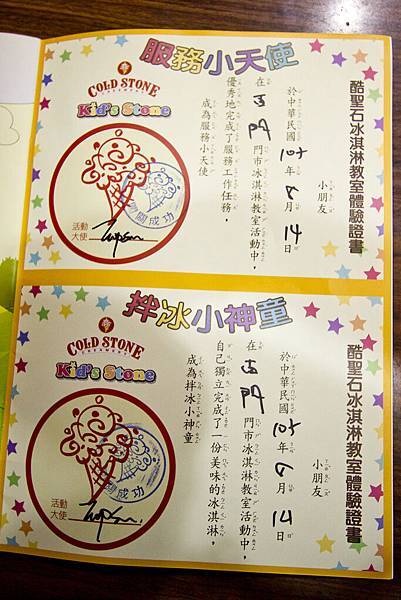 服務小天使
酷聖石冰淇淋教室體驗證書
COLD STONE
CREAMERY
Kid's Stone
小朋友
於中華民國 105 年 8 月 14 日
在 西門 門市冰淇淋教室活動中，
優秀地完成了服務工作任務，
成為服務小天使
闖關成功
活動
大使
拌冰小神童
酷聖石冰淇淋教室體驗證書
COLD STONE
CREAMERY
Kid's Stone
小朋友
於中華民國 105 年 8 月 14 日
在 西門 門市冰淇淋教室活動中，
自己獨立完成了一份美味的冰淇淋，
成為拌冰小神童
闖關成功
活動
大使